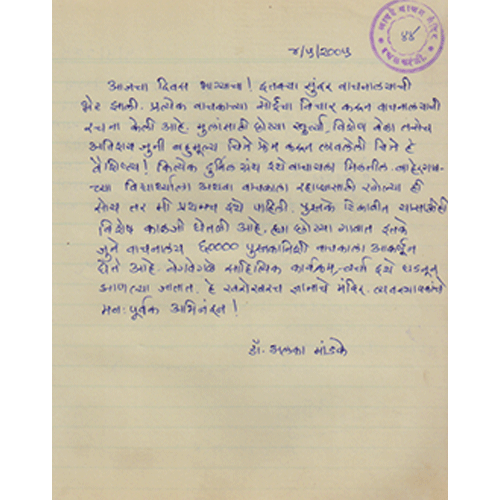 ४/५/२००५
आजचा दिवस भाग्याचा! इतक्या सुंदर वाचनालयाची
भेट झाली. प्रत्येक वाचकाच्या सोईचा विचार करून वाचनालयाची
रचना केली आहे. मुलांसाठी छोट्या खुर्च्या, विशेष बेका तसेच
अतिशय जुनी बहुमूल्य चित्रे फ्रेम करून लावलेली चित्रे हे
वैशिष्ट्य! कित्येक दुर्मिळ ग्रंथ इथे वाचायला मिळतील. बाहेरगावा-
च्या विद्यार्थ्याला अथवा वाचकाला रहाण्यासाठी खोल्या ही
सोय तर मी प्रथमच इथे पाहिली. पुस्तके टिकावीत यासाठीही
विशेष काळजी घेतली आहे. ह्या छोट्या गावात इतके
जुने वाचनालय ६०००० पुस्तकांनिशी वाचकाला आकर्षून
घेते आहे. वेगवेगळे साहित्यिक कार्यक्रम, चर्चा इथे घडवून
आणल्या जातात. हे खरोखरच ज्ञानाचे मंदिर. व्यवस्थापकांचे
मनःपूर्वक अभिनंदन!
डॉ. अलका मांडके
४४